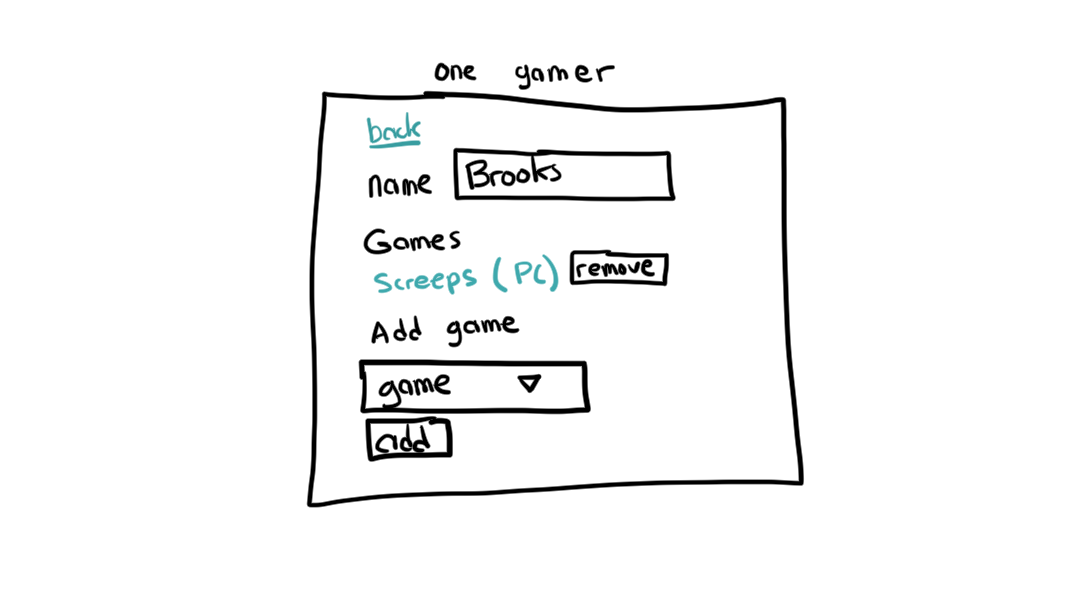 one gamer
back
name Brooks
Games
Screeps (PC) remove
Add game
game
add